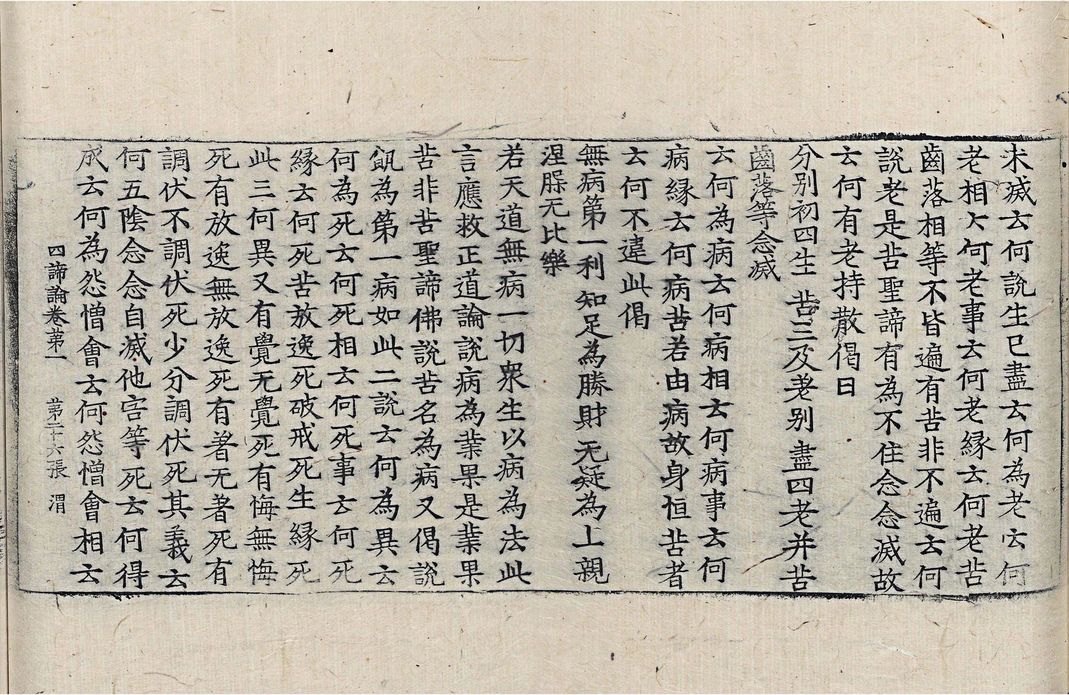 未滅云何說生已盡云何為老云何
老相云何老事云何老緣云何老苦
齒落相等不皆遍有苦非不遍云何
說老是苦聖諦有為不住念念滅故
云何有老持散偈曰
分別初四生 苦三及老別 盡四老并苦
齒落等念滅
云何為病云何病相云何病事云何
病緣云何病苦若由病故身恒苦者
云何不違此偈
無病第一利 知足為勝財 无疑為上親
涅脲无比樂
若天道無病一切衆生以病為法此
言應救正道論說病為業果是業果
苦非苦聖諦佛說苦名為病又偈說
飢為第一病如此二說云何為異云
何為死云何死相云何死事云何死
緣云何死苦放逸死破戒死生緣死
此三何異又有覺无覺死有悔無悔
死有放逸無放逸死有著无著死有
調伏不調伏死少分調伏死其義云
何五陰念念自滅他害等死云何得
成云何為怨憎會云何怨憎會相云
四諦論卷第一 苐二十六張 渭